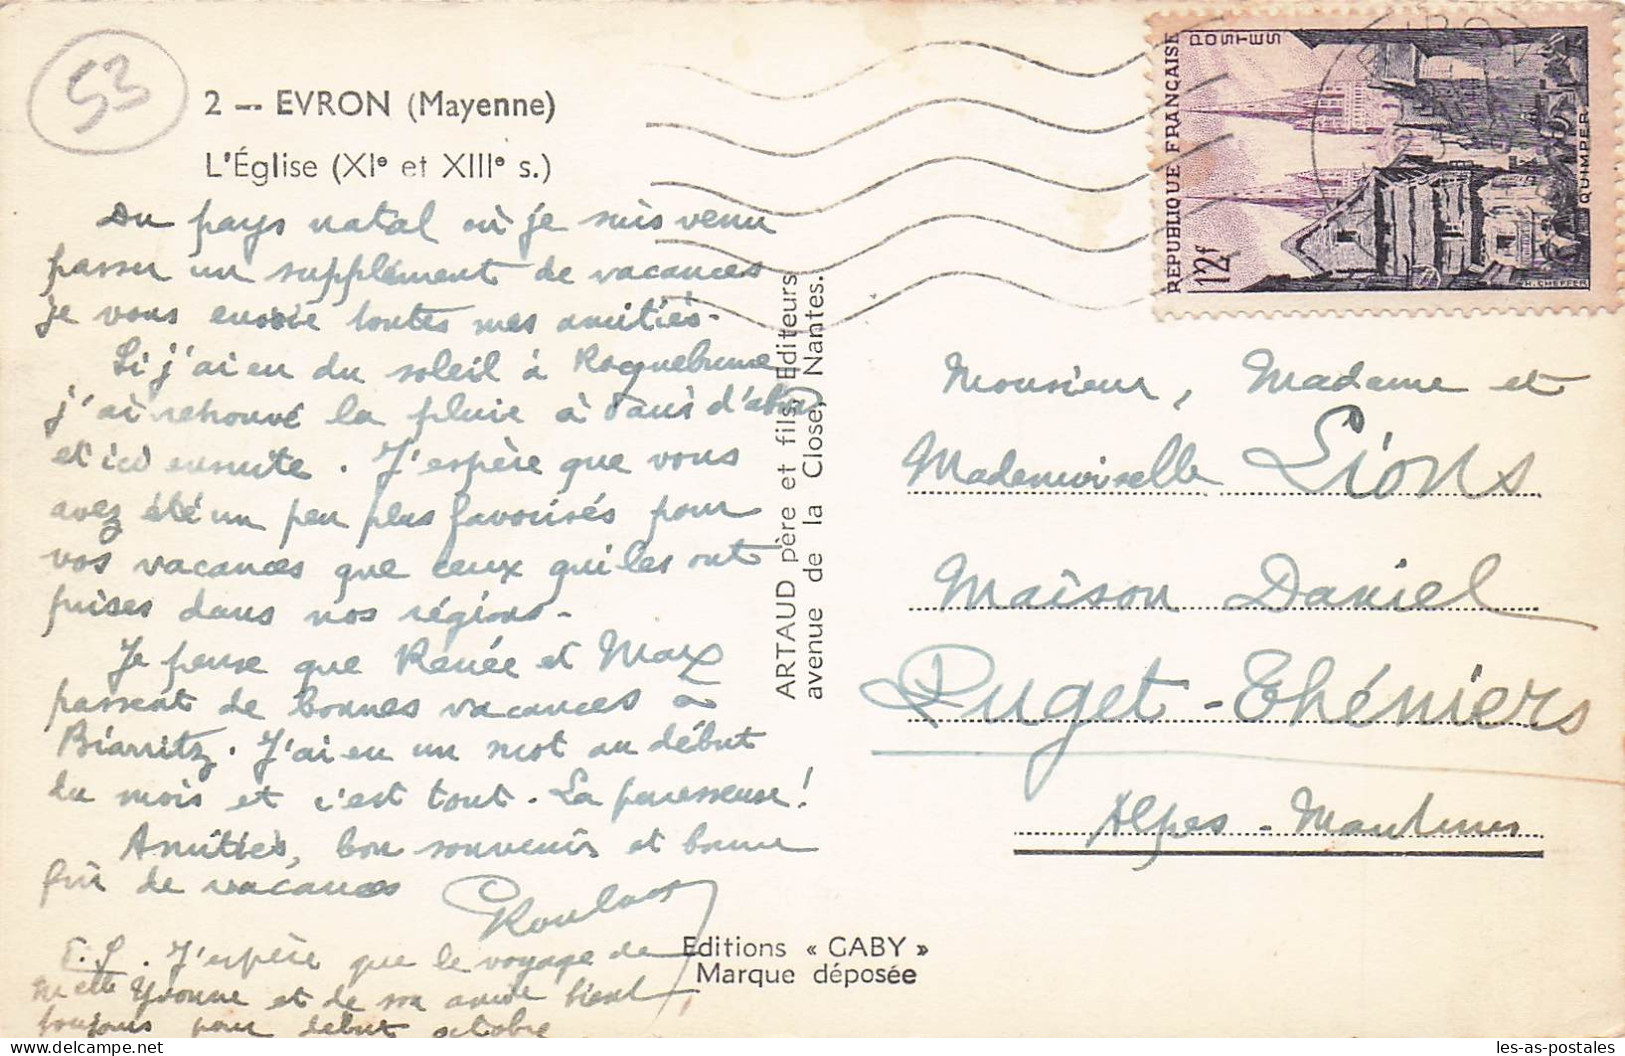 53
2 — EVRON (Mayenne)
L'Église (XIe et XIIIe s.)
Du pays natal où je suis venu
passer un supplément de vacances
je vous envoie toutes mes amitiés.
Si j'ai eu du soleil à Roquebrune
j'ai retrouvé la pluie à Paris d'abord
et ici ensuite. J'espère que vous
avez été un peu plus favorisés pour
vos vacances que ceux qui les ont
prises dans nos régions.
Je pense que Renée et Max
passent de bonnes vacances à
Biarritz. J'ai eu un mot au début
du mois et c'est tout. La paresseuse !
Amitiés, bon souvenir et bonne
fin de vacances
P.S. J'espère que le voyage de
Melle Yvonne et de son amie tient
toujours pour début octobre
ARTAUD père et fils, Editeurs
avenue de la Close, Nantes.
Editions « GABY »
Marque déposée
REPUBLIQUE FRANÇAISE
POSTES
12f
QUIMPER
H. CHEFFER
Monsieur, Madame et
Mademoiselle Lions
Maison Daniel
Puget-Théniers
Alpes-Maritimes
les-as-postales
delcampe.net